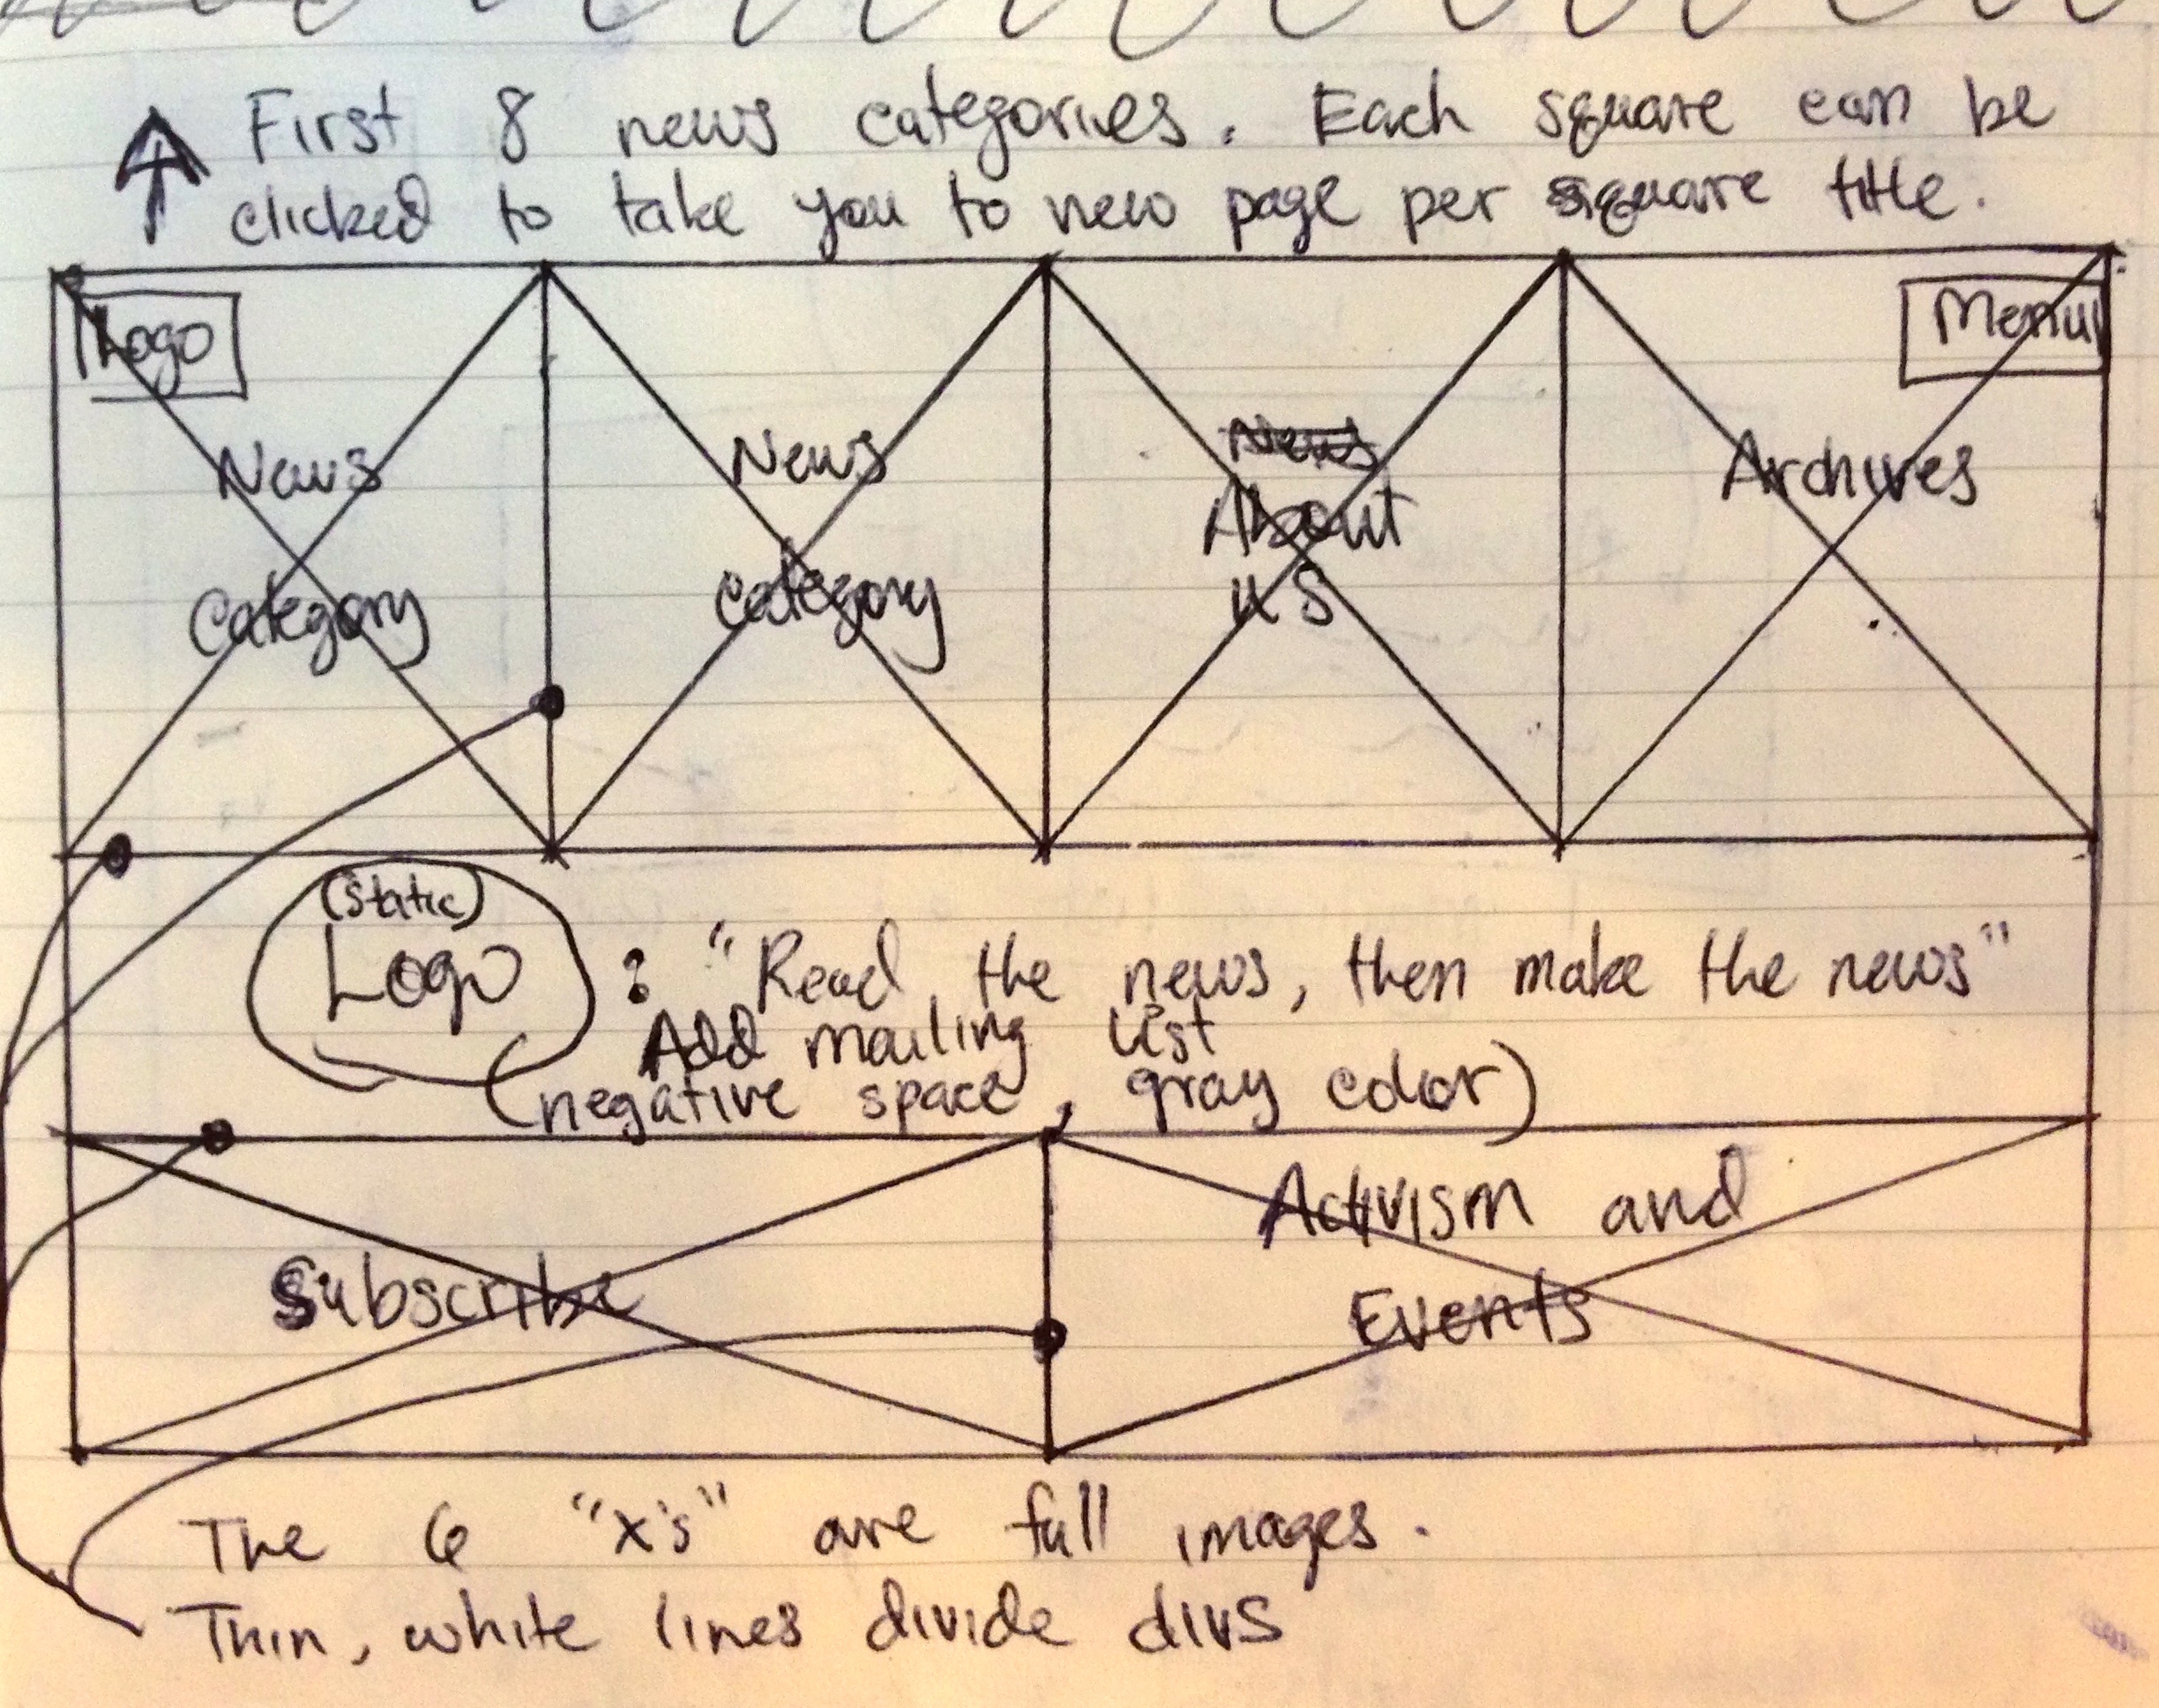 First 8 news categories. Each square can be
clicked to take you to new page per square title.
Logo
Menu
News
Category
News
category
News
About
us
Archives
(static)
Logo : "Read the news, then make the news"
Add mailing list
(negative space, gray color)
Subscribe
Activism and
Events
The 6 "x's" are full images.
Thin, white lines divide divs